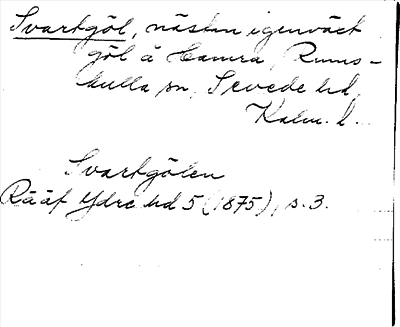 Svartgöl, nästan igenväxt
göl å Hamra, Rums-
kulla sn, Sevede hd,
Kalm. l.
Svartgölen
Rääf Ydre hd 5 (1875), s. 3.